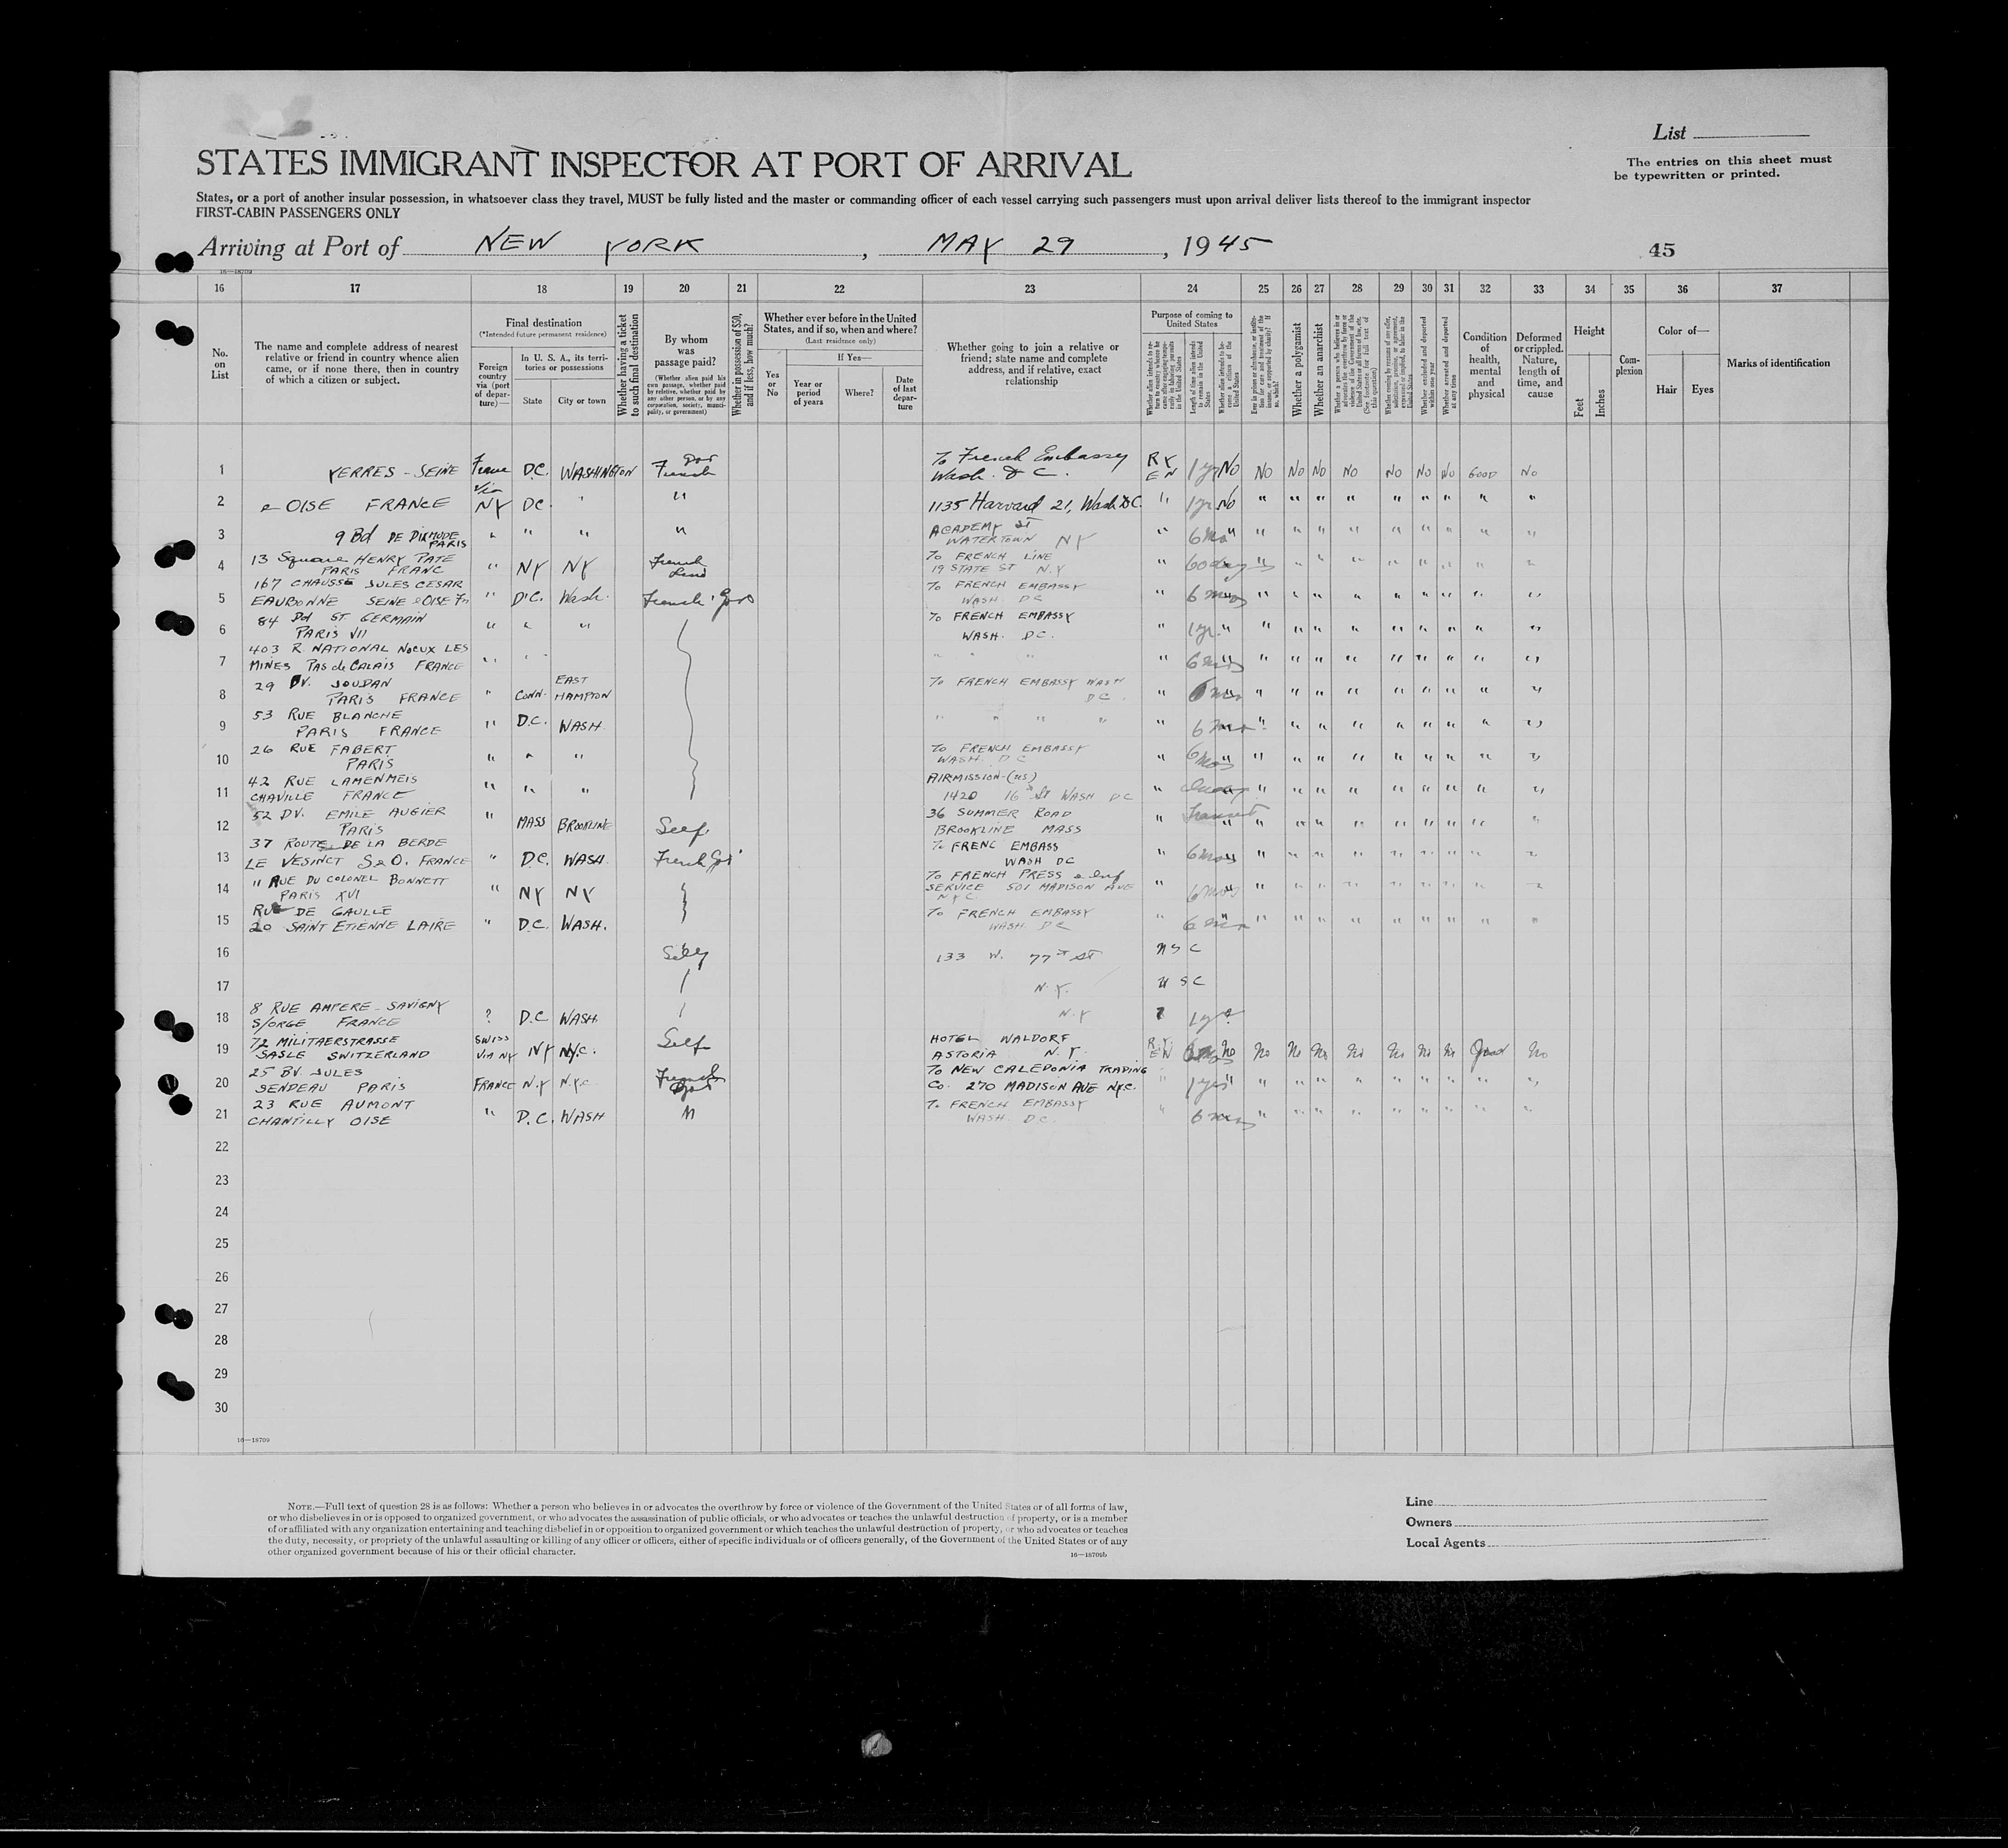 List
STATES IMMIGRANT INSPECTOR AT PORT OF ARRIVAL
The entries on this sheet must
be typewritten or printed.
States, or a port of another insular possession, in whatsoever class they travel, MUST be fully listed and the master or commanding officer of each vessel carrying such passengers must upon arrival deliver lists thereof to the immigrant inspector
FIRST-CABIN PASSENGERS ONLY
Arriving at Port of NEW YORK, MAY 29, 1945
45
16—18709
16 17 18 19 20 21 22 23 24 25 26 27 28 29 30 31 32 33 34 35 36 37
No. on List
The name and complete address of nearest
relative or friend in country whence alien
came, or if none there, then in country
of which a citizen or subject.
Final destination
(*Intended future permanent residence)
Foreign country via (port of departure)—
In U. S. A., its territories or possessions
State
City or town
Whether having a ticket to such final destination
By whom was passage paid?
(Whether alien paid his own passage, whether paid by relative, whether paid by any other person, or by any corporation, society, municipality, or government)
Whether in possession of $50, and if less, how much?
Whether ever before in the United States, and if so, when and where?
(Last residence only)
Yes or No
If Yes—
Year or period of years
Where?
Date of last departure
Whether going to join a relative or
friend; state name and complete
address, and if relative, exact
relationship
Purpose of coming to United States
Length of time alien intends to remain in the United States
Whether alien intends to become a citizen of the United States
Whether a polygamist
Whether an anarchist
Whether excluded and deported within one year
Whether arrested and deported at any time
Condition of health, mental and physical
Deformed or crippled. Nature, length of time, and cause
Height
Feet
Inches
Complexion
Color of—
Hair
Eyes
Marks of identification
1 YERRES - SEINE D.C. WASHINGTON French To French Embassy Wash. D C. 1 yr No No No No No No No No GOOD No
2 OISE FRANCE via NY DC. " " 1135 Harvard 21, Wash DC. " 1 yr No " " " " " " " " "
3 9 Bd DE DIXMUDE PARIS " " " " ACADEMY ST WATERTOWN NY " 6 mo " " " " " " " " " "
4 13 Square HENRY PATE PARIS FRANC " NY NY French Line To FRENCH LINE 19 STATE ST N.Y " 60 days " " " " " " " " "
5 167 CHAUSSE JULES CESAR EAUBONNE SEINE & OISE Fr " D.C. Wash. French Gov To FRENCH EMBASSY WASH. DC " 6 mos " " " " " " " " "
6 84 Bd ST. GERMAIN PARIS VII " " " To FRENCH EMBASSY WASH. DC. " 1 yr. " " " " " " " " " "
7 403 R. NATIONAL NOEUX LES MINES PAS de CALAIS FRANCE " " " " " " " 6 mos " " " " " " " " "
8 PARIS FRANCE " CONN. EAST HAMPTON To FRENCH EMBASSY WASH DC. " " " " " " " " " " "
9 53 RUE BLANCHE PARIS FRANCE " D.C. WASH. " " " " " 6 mos " " " " " " " " "
10 26 RUE FABERT PARIS " " " To FRENCH EMBASSY WASH. DC " 6 mos " " " " " " " " "
11 42 RUE LAMENMEIS CHAVILLE FRANCE " " " AIRMISSION-(us) 1420 16th St WASH DC " " " " " " " " " "
12 EMILE AUGIER PARIS " MASS BROOKLINE Self. 36 SUMMER ROAD BROOKLINE MASS " Transit " " " " " " " " " "
13 37 ROUTE DE LA BERDE LE VESINCT S&O. FRANCE " D.C. WASH. French Gov' To FRENC EMBASS WASH DC " 6 mos " " " " " " " " "
14 " RUE DU COLONEL BONNETT PARIS XVI " NY NY To FRENCH PRESS & Inf SERVICE 501 MADISON AVE NYC. " 6 mos " " " " " " " " "
15 RUE DE GAULLE 20 SAINT ETIENNE LAIRE " D.C. WASH. To FRENCH EMBASSY WASH. DC " 6 " " " " " " " " " "
16 Self 133 W. 77th St U S C
17 N.Y. U S C
18 8 RUE AMPERE - SAVIGNY S/ORGE FRANCE ? D.C WASH. N.Y ? 1 yr
19 72 MILITAERSTRASSE SASLE SWITZERLAND SWISS VIA NY NY NY.C. Self HOTEL WALDORF ASTORIA N.Y. No No No No No No No No Good No
20 25 BV. JULES SENDEAU PARIS FRANCE N.Y N.Y.C French Gov To NEW CALEDONIA TRADING Co. 270 MADISON AVE NYC. " 1 yr " " " " " " " " " "
21 23 RUE AUMONT CHANTILLY OISE " D.C. WASH " To FRENCH EMBASSY WASH. DC. " 6 mos " " " " " " " " "
22
23
24
25
26
27
28
29
30
16—18709
NOTE.—Full text of question 28 is as follows: Whether a person who believes in or advocates the overthrow by force or violence of the Government of the United States or of all forms of law,
or who disbelieves in or is opposed to organized government, or who advocates the assassination of public officials, or who advocates or teaches the unlawful destruction of property, or is a member
of or affiliated with any organization entertaining and teaching disbelief in or opposition to organized government or which teaches the unlawful destruction of property, or who advocates or teaches
the duty, necessity, or propriety of the unlawful assaulting or killing of any officer or officers, either of specific individuals or of officers generally, of the Government of the United States or of any
other organized government because of his or their official character.
16—18709b
Line
Owners
Local Agents